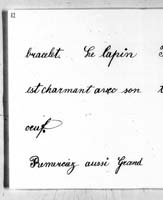 12
bracelet. Le lapin
est charmant avec son
oeuf.
Remerciez aussi Grand